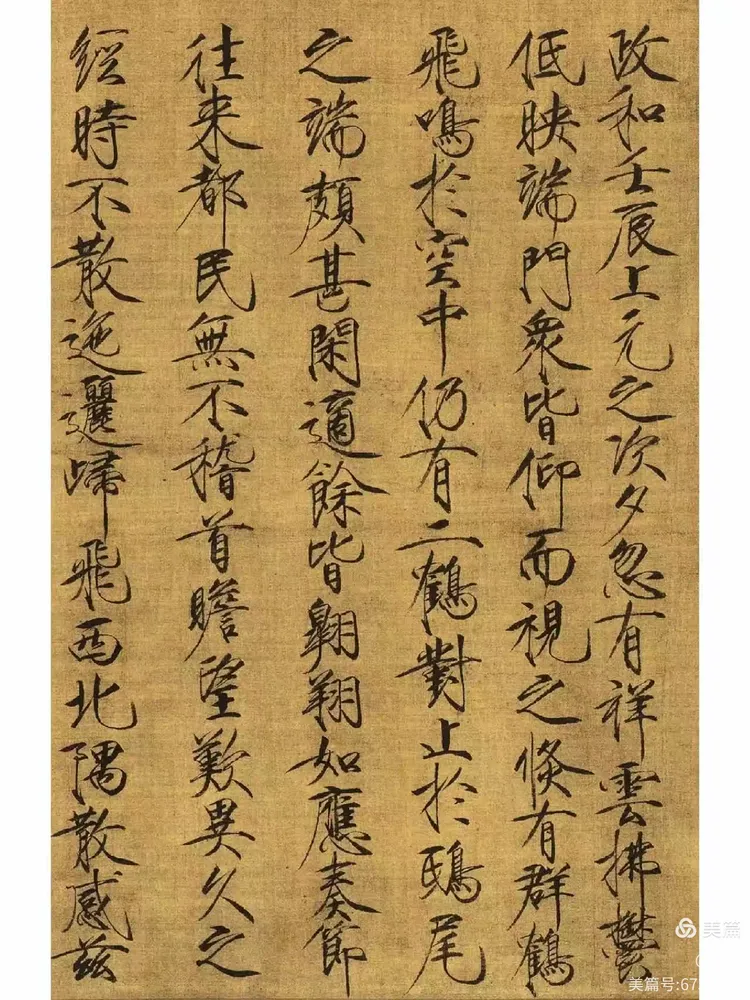 政和壬辰上元之次夕忽有祥雲拂鬱
低映端門衆皆仰而視之倏有群鶴
飛鳴於空中仍有二鶴對止於鴟尾
之端頗甚閑適餘皆翱翔如應奏節
往来都民無不稽首瞻望歎異久之
經時不散迤邐歸飛西北隅散感兹
美篇
美篇号:67